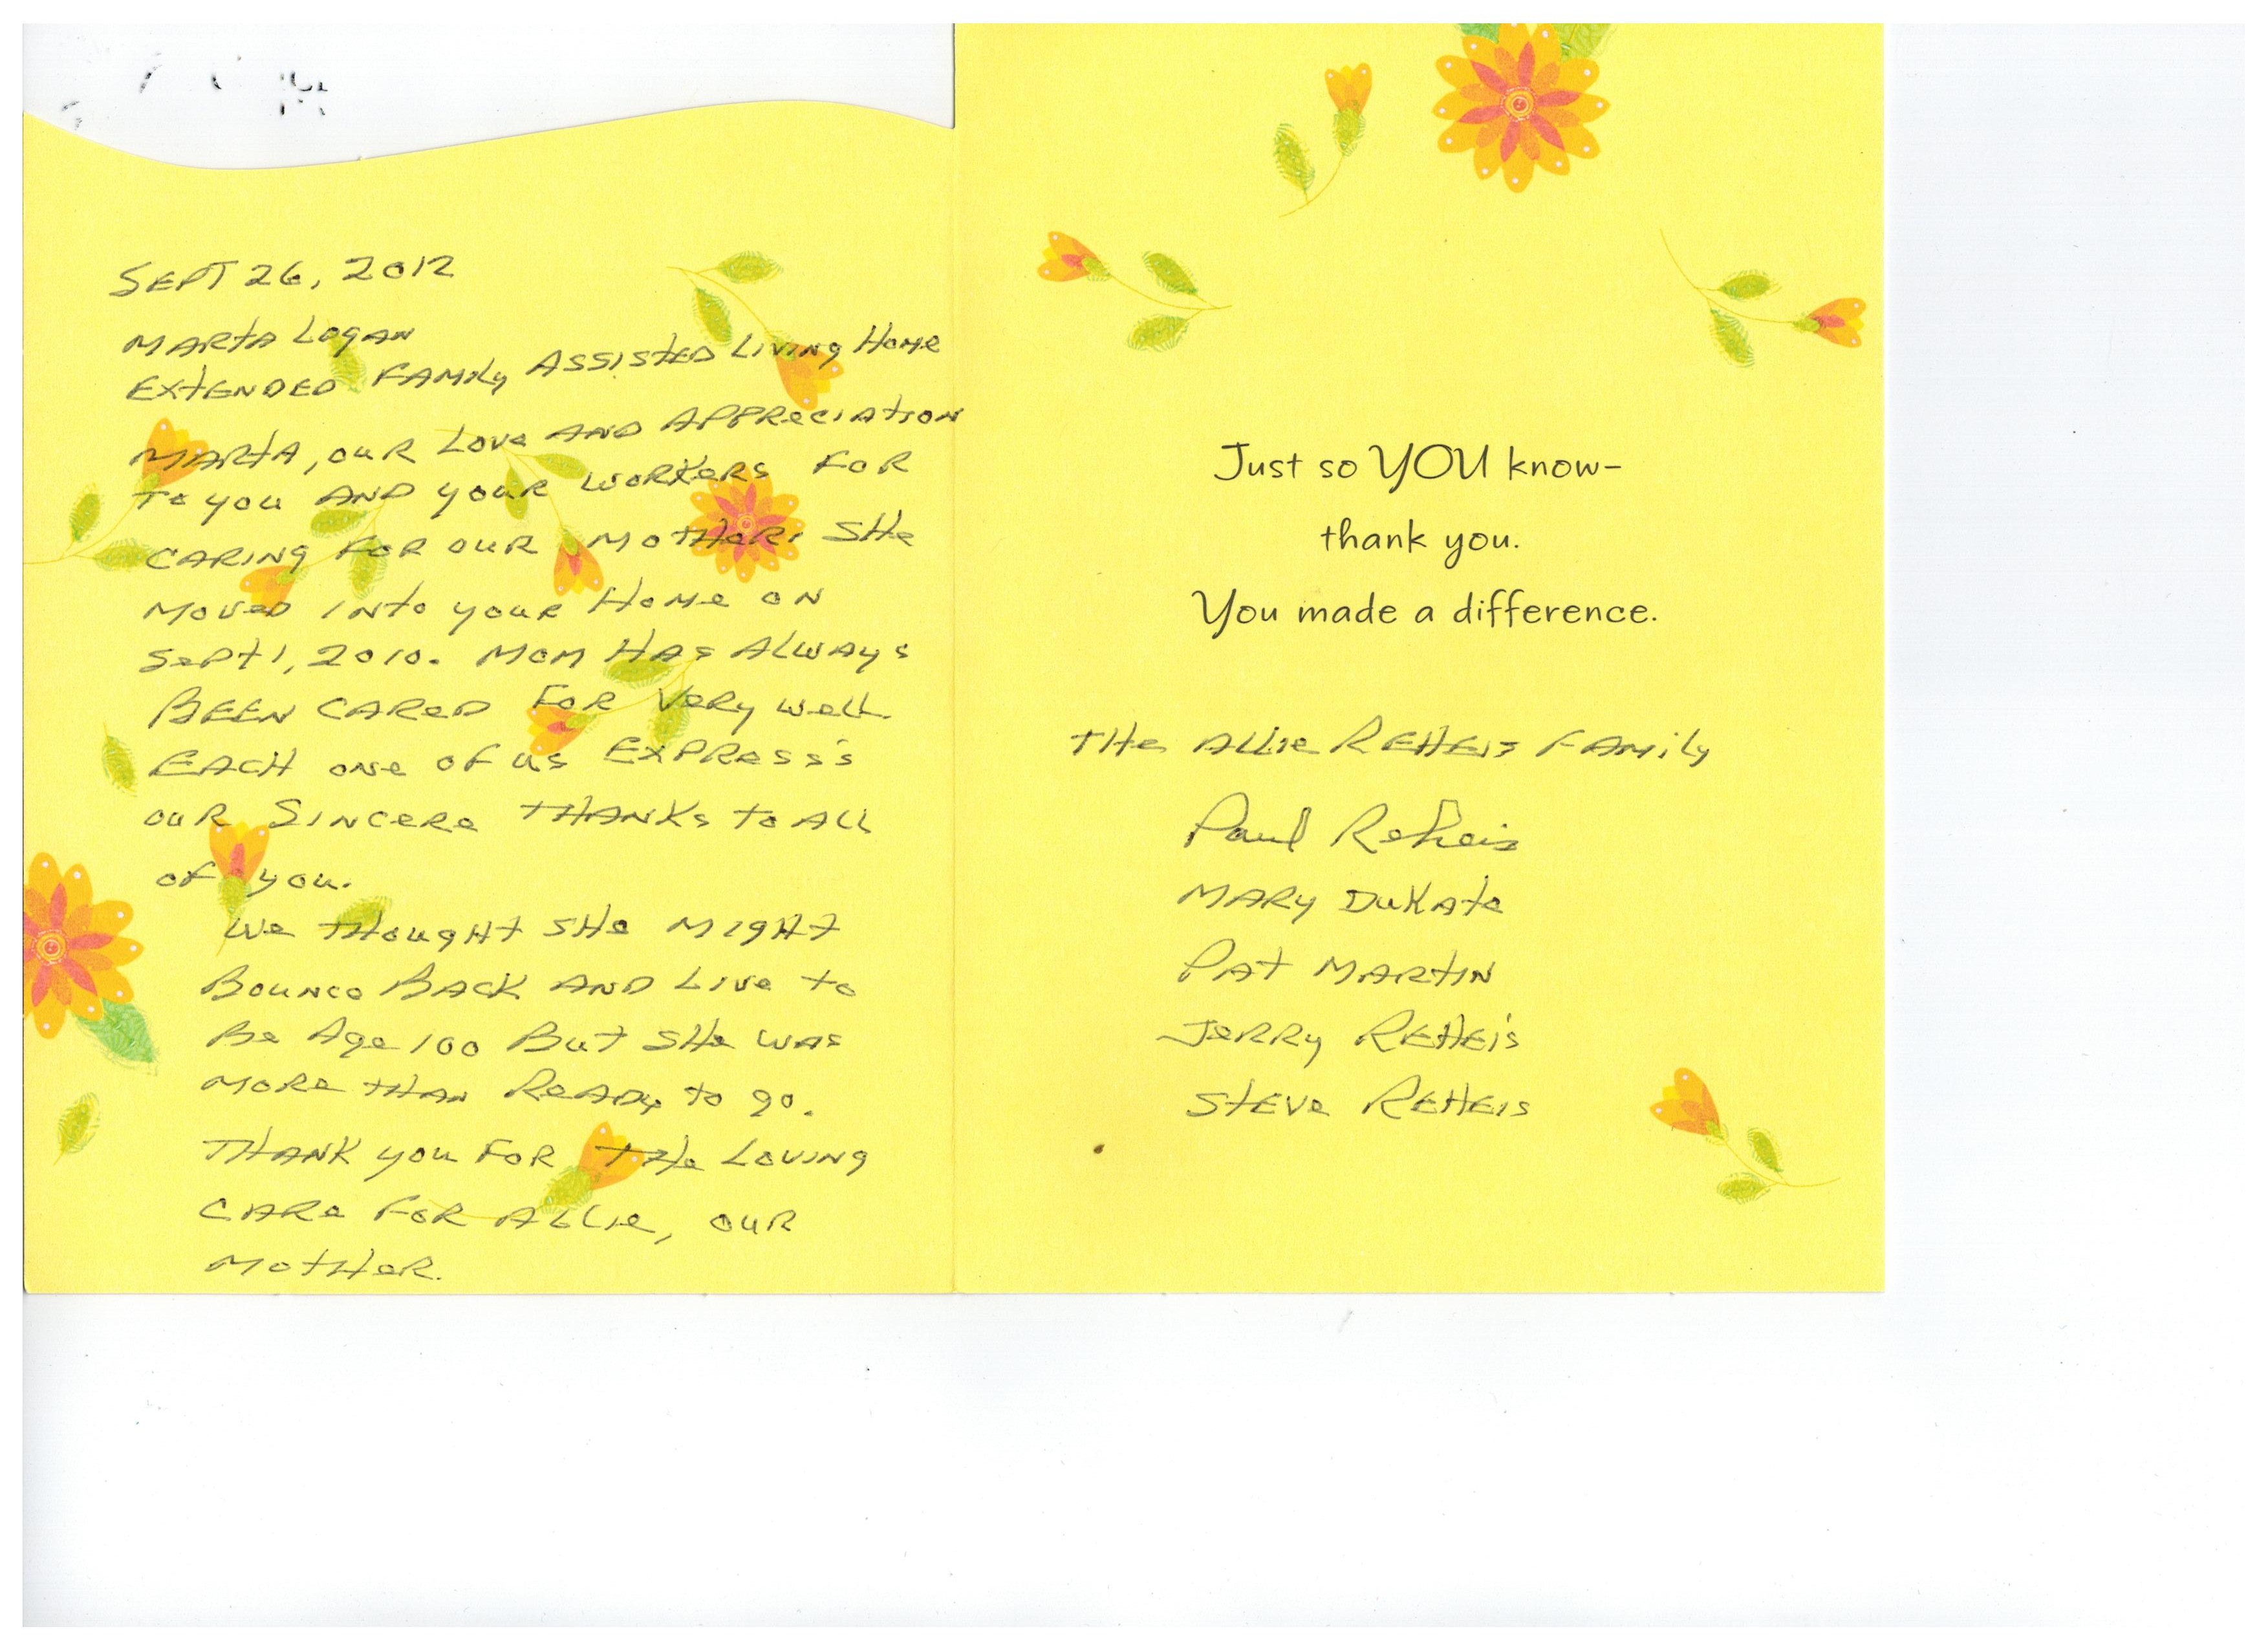 SEPT 26, 2012
MARTA LOGAN
EXTENDED FAMILY ASSISTED LIVING HOME
MARTA, OUR LOVE AND APPRECIATION
TO YOU AND YOUR WORKERS FOR
CARING FOR OUR MOTHER. SHE
MOVED INTO YOUR HOME ON
SEPT 1, 2010. MOM HAS ALWAYS
BEEN CARED FOR VERY WELL.
EACH ONE OF US EXPRESS'S
OUR SINCERE THANKS TO ALL
OF YOU.
WE THOUGHT SHE MIGHT
BOUNCE BACK AND LIVE TO
BE AGE 100 BUT SHE WAS
MORE THAN READY TO GO.
THANK YOU FOR THE LOVING
CARE FOR ALLIE, OUR
MOTHER.
Just so YOU know–
thank you.
You made a difference.
THE ALLIE REHEIS FAMILY
Paul Reheis
MARY DUKATE
PAT MARTIN
JERRY REHEIS
STEVE REHEIS